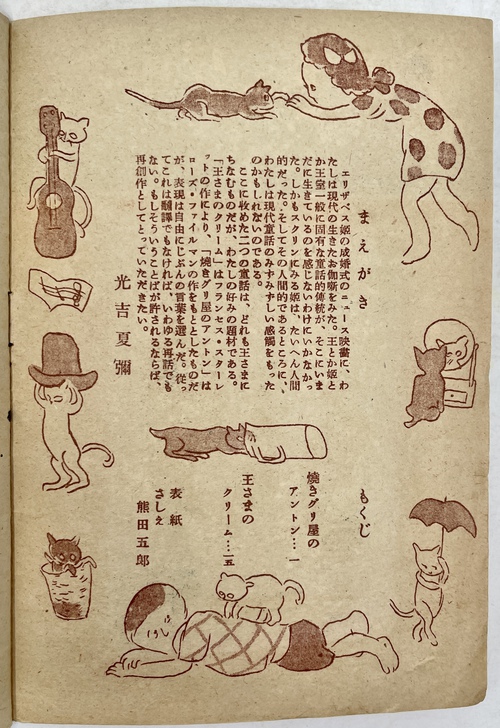 まえがき
エリザベス姫の成婚式のニュース映畫に、わ
たしは現代の生きたお伽噺をみた。王とか姫と
か王室一般に固有な童話的傳統が、そこにいま
だに生きているのを感じないわけにいかなかっ
た。しかもスクリンにみる姫は、たいへん人間
的だった。そしてその人間的であるところに、
わたしは現代童話のみずみずしい感觸をもった
のかもしれないのである。
ここに收めた二つの童話は、どれも王さまに
ちなむものだが、わたしの好みの題材である。
「王さまのクリーム」はフランセス・スターレ
ットの作により、「燒きグリ屋のアントン」は
ローズ・ファイルマンの作をもととしたものだ
が、表現は自由にじぶんの言葉を選んだ。從っ
てこれは飜譯でもなければ、いわゆる再話でも
ない。もしそういうことばが許されるならば、
再創作としてとっていただきたい。
光吉夏彌
もくじ
燒きグリ屋の
アントン…一
王さまの
クリーム…一五
表紙
さしえ
熊田五郎